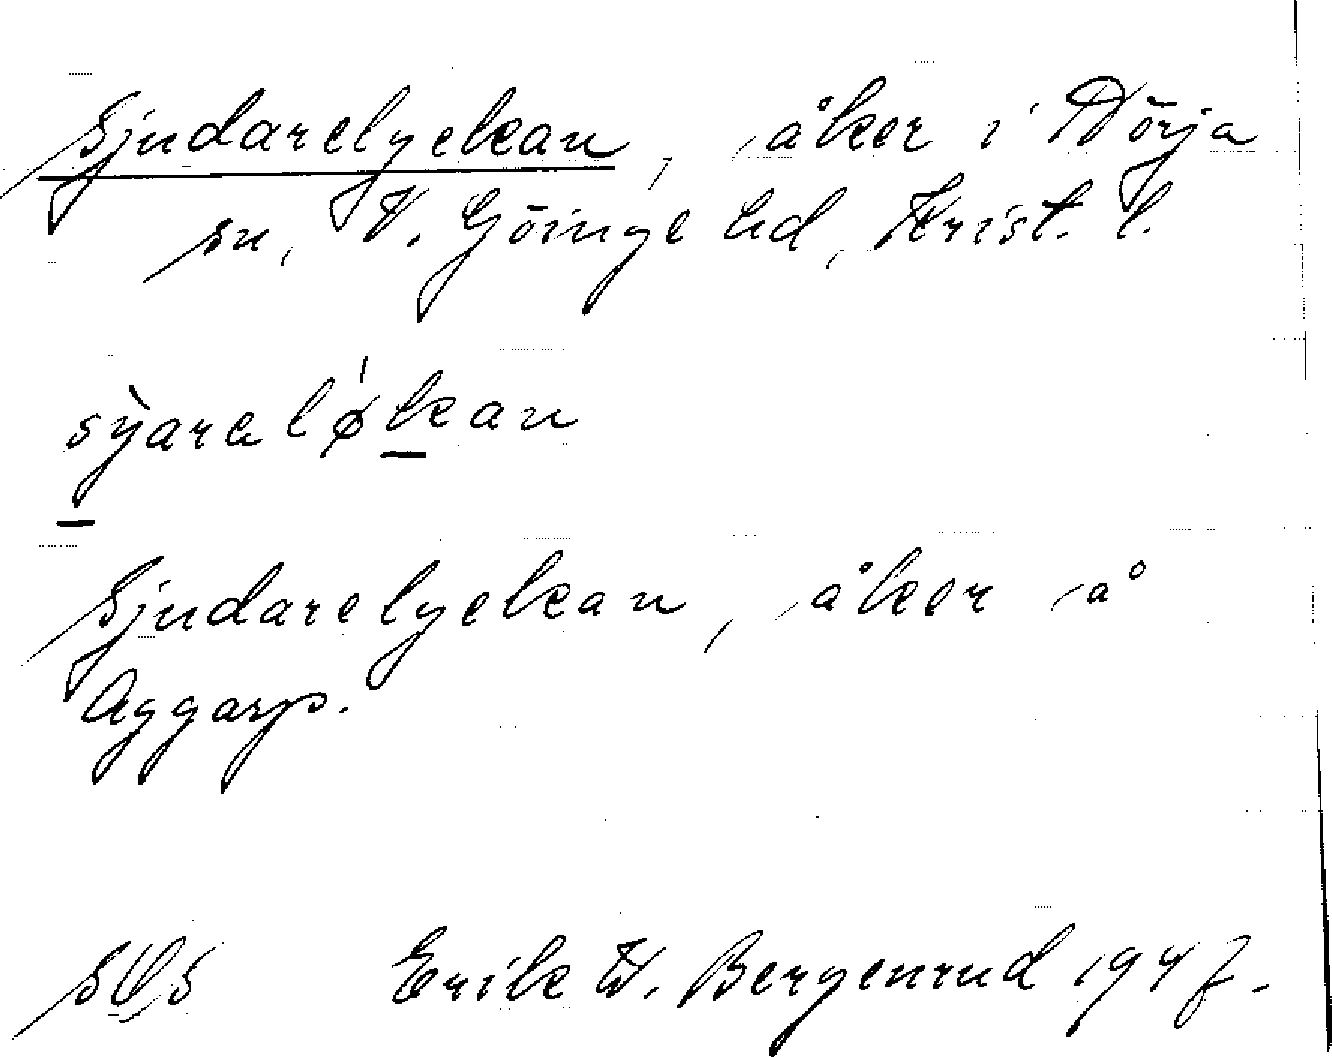 Sjudarelyckan, åker i Nörja
sn, V. Göinge hd, Krist. l.
sỳaralǿkan
Sjudarelyckan, åker å
Aggarp.
SOS Erik W. Bergenrud 1947.